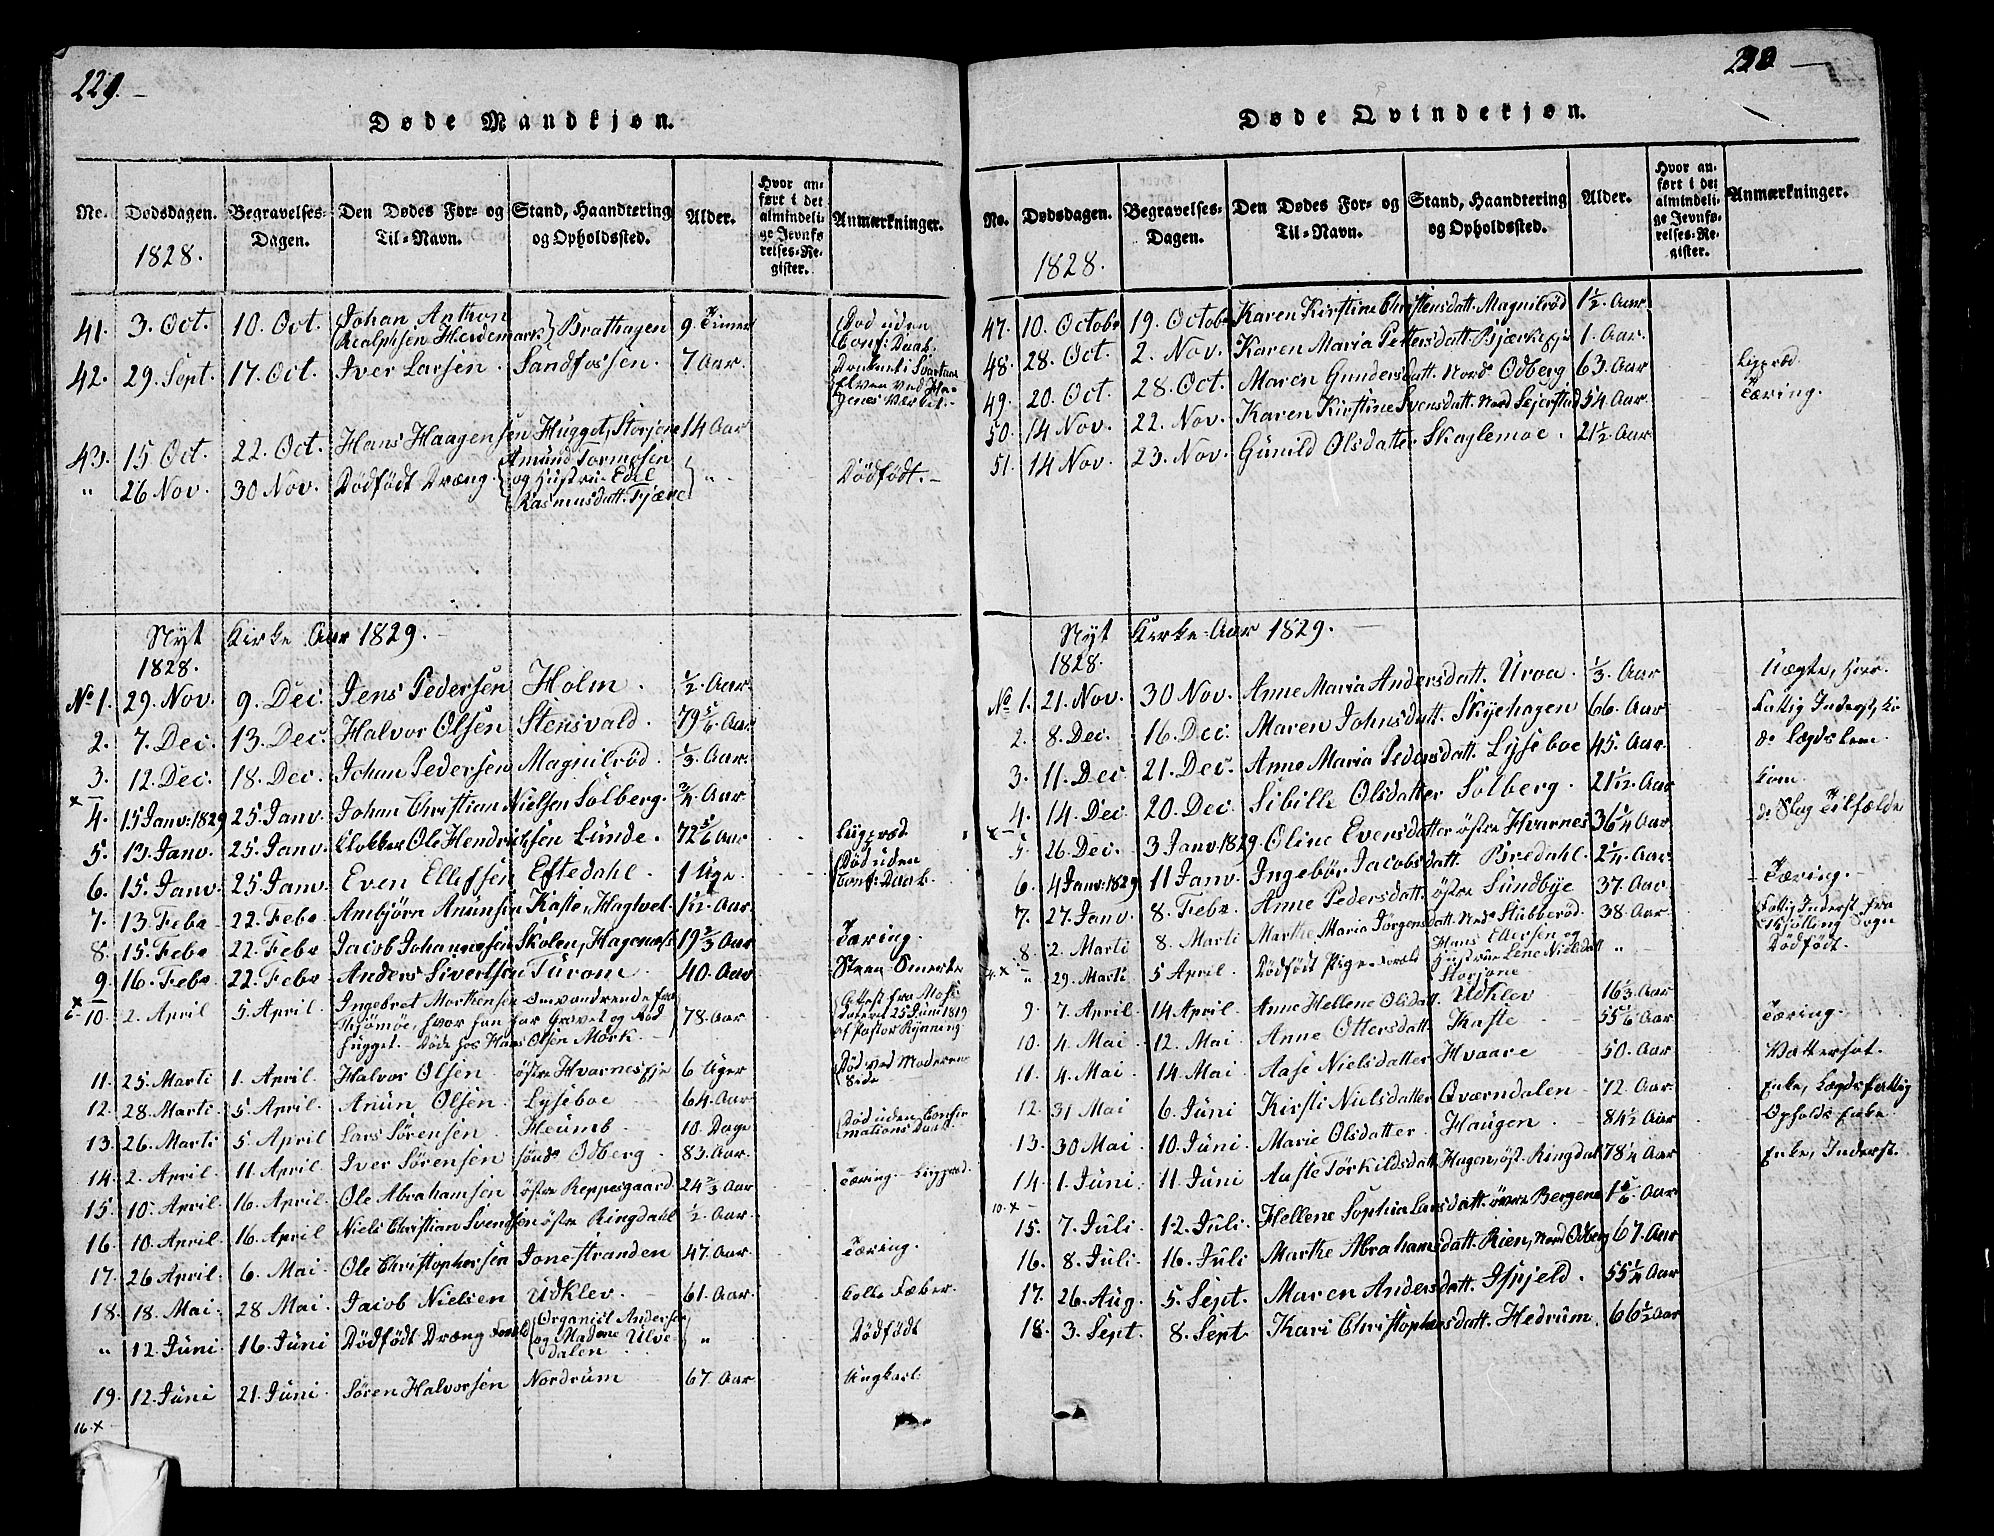 229.
Døde Mandkjøn.
No. Dødsdagen. 1828. Begravelses-Dagen. Den Dødes For- og Til-Navn. Stand, Haandtering og Opholdssted. Alder. Hvor anført i det almindelige Jevnførelses-Register. Anmærkninger.
41. 3. Oct. 10. Oct. Johan Anthon Realphsen Heidemark Brathagen 9. Timer Død uden Conf: Daab.
42. 29. Sept. 17. Oct. Iver Larsen. Sandfossen. 7 Aar. Elven ved Verket.
43. 15 Oct. 22. Oct. Hans Haagensen Hugget, Storjone 14 Aar
" 26 Nov. 30 Nov. Dödfödt Dræng. Amund Tormosen og Hustrue Edel Rasmusdatt. Fjære " Dödfödt.
Nyt Kirke Aar 1829.
1828.
No 1. 29. Nov. 9. Dec. Jens Pedersen Holm. ½ Aar.
2. 7. Dec. 13. Dec. Halvor Olsen Stensvald. 79 5/6 Aar.
3. 12. Dec. 18. Dec. Johan Pedersen Magnilröd. 1/3 Aar.
4. 15 Janv: 1829 25. Janv. Johan Christian Nielsen Solberg. 3/4 Aar.
5. 13. Janv. 25. Janv. Klokker Ole Hendrichsen Lunde. 72 5/6 Aar Ligpræd.
6. 15. Janv. 25. Janv. Even Ellefsen Eftedahl. 1 Uge. Död uden Conf: Daab.
7. 13 Febr 22. Febr Ambjörn Anunsen Kaste, Hagtvet 1 1/12 Aar.
8. 15. Febr 22. Febr Jacob Johannesen Skolen, Hagenæs 19 2/3 Aar Tæring.
9. 16. Febr 22. Febr Anders Sivertsen Turom 40. Aar Steen Smerte
10. 2. April 5. April Ingebret Morthensen Omvandrende fra Thjömöe, hvor han har Gravet og Rödhugget. Döde hos Hans Olsen Mörk. 78. Aar Attest fra Moss dateret 25 Juni 1819 af Pastor Rynning
11. 25. Marti 1. April. Halvor Olsen. östre Hvarneseje 6 Uger Död ved Moderens Side.
12. 28. Marti. 5. April. Anun Olsen. Lyseboe 64. Aar
13. 26. Marti 5. April Lars Sörensen. Heumb. 10. Dage Död uden Confirmations Daab.
14. 2. April. 11. April. Iver Sörensen söndr Odberg. 83. Aar.
15. 10. April. 16. April. Ole Abrahamsen östre Reppesgaard 24 2/3 Aar Tæring. Ligpræd.
16. 10. April. 16. April Niels Christian Svendsen östr Ringdahl ½ Aar.
17. 26 April. 6. Mai. Ole Christophersen Jonestranden 47. Aar. Tæring.
18. 18. Mai. 28 Mai. Jacob Nielsen Udklev. 61. Aar. Colle Feber.
" 12. Juni. 16. Juni Dödfödt Dræng Organist Andersen og Madame Ulvedalen " Dödfödt
19. 12. Juni 21. Juni. Sören Halvorsen Nordrum 67. Aar Ungkarl.
16.x
230
Døde Qvindekjøn.
No. Dødsdagen. 1828. Begravelses-Dagen. Den Dødes For- og Til-Navn. Stand, Haandtering og Opholdssted. Alder. Hvor anført i det almindelige Jevnførelses-Register. Anmærkninger.
47. 10. Octobr 19. Octobr Karen Kirstine Christensdatt. Magnilröd 1½ Aar
48. 28. Oct. 2. Nov. Karen Maria Pettersdatt. Bjærkeeje 1. Aar.
49. 20. Oct. 28. Oct. Maren Gundersdatt. Nordr Odberg 63. Aar Ligpræd.
50. 14 Nov. 22. Nov. Karen Kirstine Svensdatt. Nord Sejerstad 54. Aar Tæring.
51. 14 Nov. 23. Nov. Gunild Olsdatter Skaglemoe. 21½ Aar
Nyt Kirke-Aar 1829.
1828.
No 1. 21. Nov. 30 Nov. Anne Maria Andersdatt. Uroa. 1/3 Aar
2. 8. Dec. 16. Dec. Maren Johnsdatt. Skyehagen 66. Aar
3. 11. Dec. 21. Dec. Anne Maria Pedersdatt. Lyseboe 45. Aar
4. 14. Dec 20. Dec Sibille Olsdatter Solberg. 21 1/12. Aar
5. 26. Dec. 3 Janv. 1829. Oline Evensdatter östre Hvarnes 36 1/4 Aar Slag Tilfælde
6. 4 Janv: 1829 11 Janv. Ingebör Jacobsdatt. Bredahl. 2 1/4 Aar.
7. 27. Janv. 8. Febr. Anne Pedersdatt. östre Sundbye 37. Aar Tæring.
8. 2. Marti 8. Marti Marthe Maria Jörgensdatt. Nedr Stubberöd. 38. Aar Fattig Inderst fra Kjølling Sogn
" 29. Marti 5 April. Dödfödt Pige Hans Ellefsen og Hustrue Lene Nielsdatt Storjone " Dödfödt.
9. 7. April 14 April. Anne Hellene Olsdatt. Udklev 16 1/3 Aar
10. 4. Mai 12. Mai. Anne Ottersdatt. Kaste 55 1/6 Aar Tæring.
11. 4. Mai. 14 Mai. Aase Nielsdatter Hvaare 50. Aar Vattersot.
12. 31 Mai 6. Juni Kirsti Nielsdatter Qværndalen 72. Aar Enke, Lægdsfattig
13. 30 Mai. 10. Juni. Marie Olsdatter. Haugen. 84½ Aar Opholds Enke
14. 1. Juni. 11. Juni Aaste Törkildsdatt Hagen, öst. Ringdal 78 1/4 Aar Enke, Inderst.
10.x
15. 7. Juli. 12. Juli. Hellene Sophia Larsdatt. övre Bergene 1 5/6 Aar
16. 8. Juli. 16. Juli Marthe Abrahamsdatt. Rien, Nord Odberg 67. Aar
17. 26. Aug. 5. Sept. Maren Andersdatt. Ispjeld. 55 1/4 Aar
18. 3. Sept. 8. Sept. Kari Christophersdatt. Hedrum. 66½ Aar